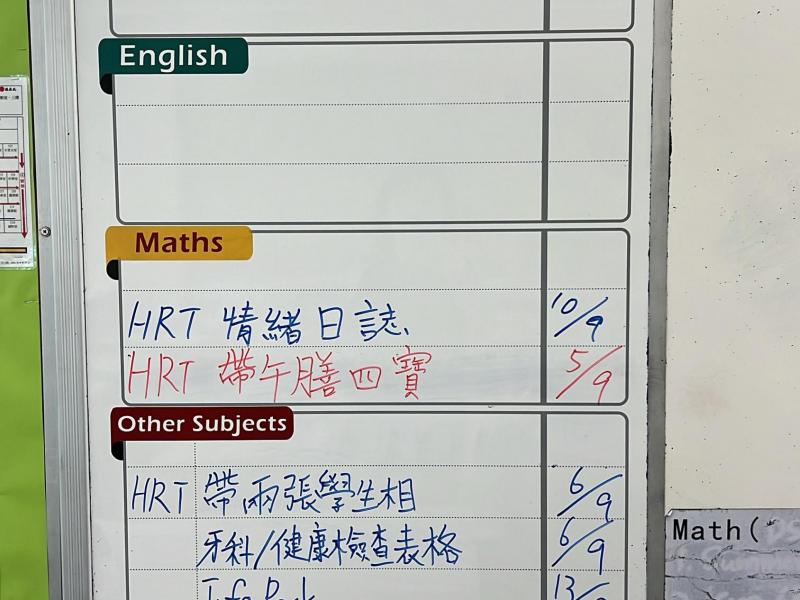 English
Maths
HRT 情緒日誌 10/9
HRT 帶午膳四寶 5/9
Other Subjects
HRT 帶兩張學生相 6/9
牙科/健康檢查表格 6/9
13/
Math(